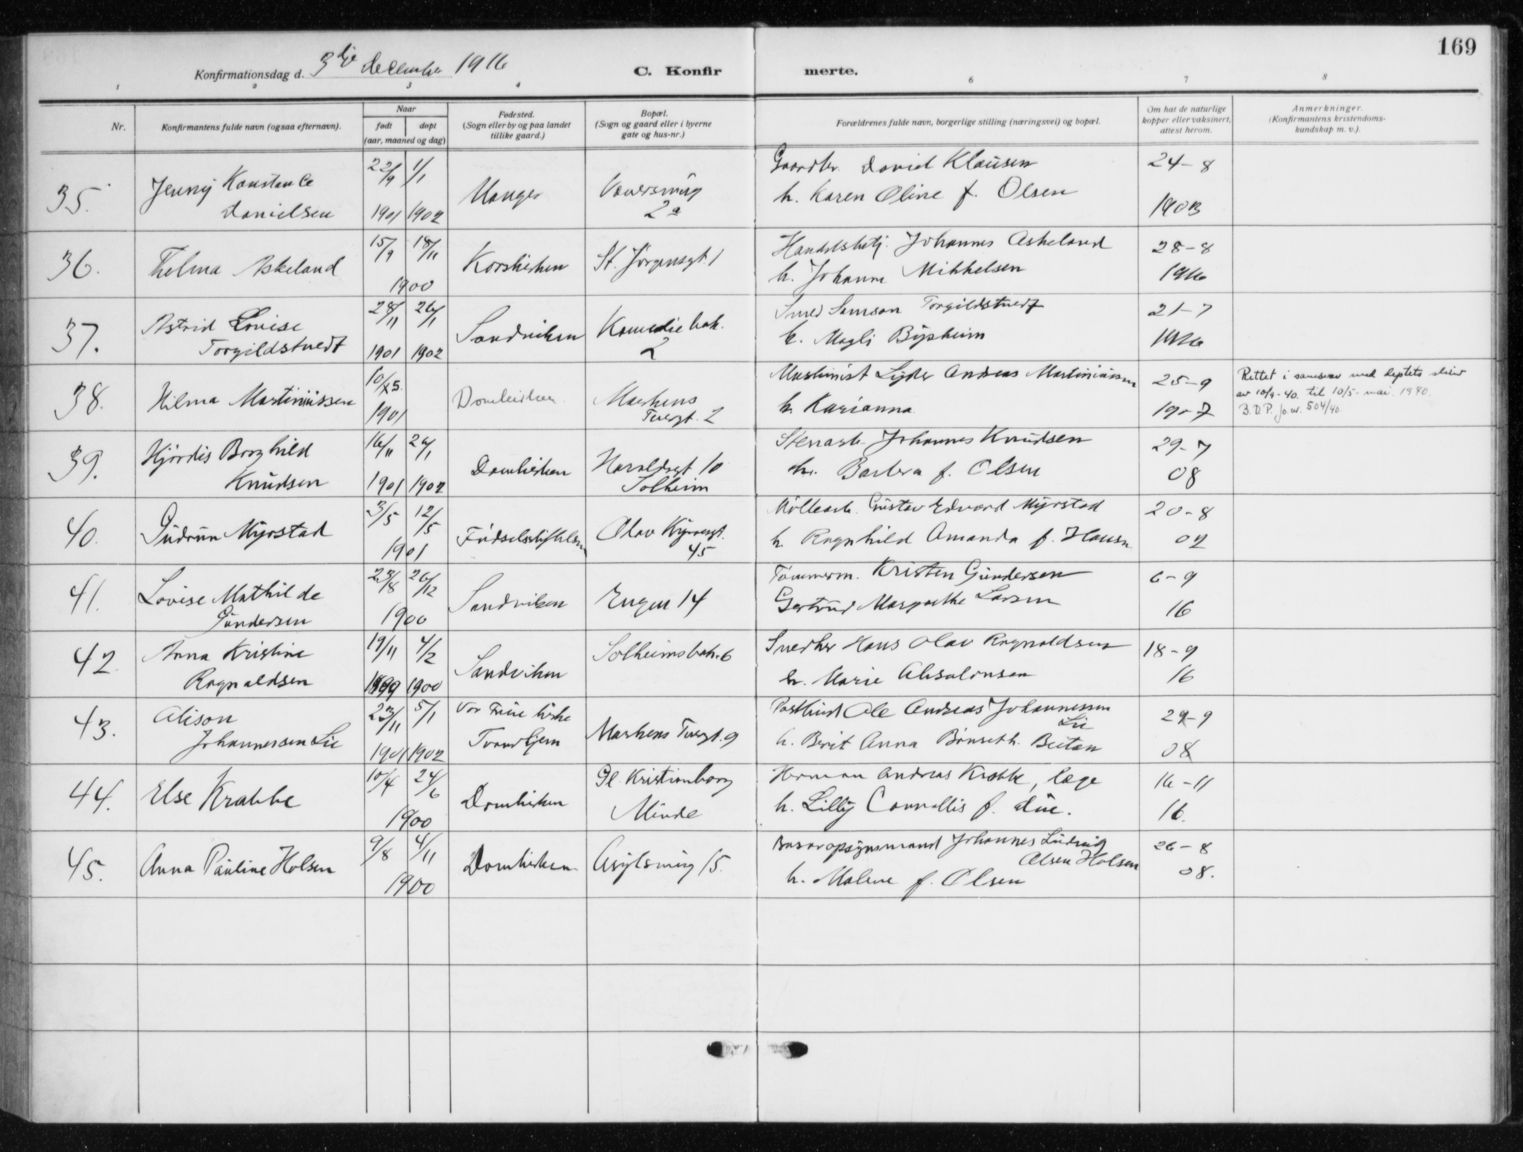 169
Konfirmationsdag d. 3die december 1916
C. Konfirmerte.
1 2 3 4 6 7 8
Nr.
Konfirmantens fulde navn (ogsaa efternavn).
Naar
født døpt
(aar, maaned og dag)
Fødested.
(Sogn eller by og paa landet
tillike gaard.)
Bopæl.
(Sogn og gaard eller i byerne
gate og hus-nr.)
Forældrenes fulde navn, borgerlige stilling (næringsvei) og bopæl.
Om hat de naturlige
kopper eller vaksinert,
attest herom.
Anmerkninger.
(Konfirmantens kristendoms-
kundskap m. v.).
35. Jenny Konstance
Danielsen
22/9 1901 1/1 1902
Manger
2a
David Klausen
h. Karen Oline f. Olsen
24-8
1903
36. Thelma Askeland
15/9 18/11
1900
Korskirken
St. Jørgensgt. 1
Handelsbetj. Johannes Askeland
h. Johanna Mikkelsen
28-8
1916
37. Astrid Lovise
Torgildstvedt
28/11 1901 26/1 1902
Sandviken
Komediebak.
2
Smed Samson Torgildstvedt
h. Magli
21-7
1916
38. Hilma Martiniussen
10/5
1901
Domkirken
Markens
Tvergt. 2
Maskinist Andreas Martiniussen
h. Karianna
25-9
1907
Rettet i samsvar med
av 10/4-40. til 10/5- mai. 1940.
B.D.P. jo. nr. 504/40.
39. Hjördis Borghild
Knudsen
16/11 1901 26/1 1902
Domkirken
Haraldsgt 10
Solheim
Stenarb. Johannes Knudsen
h. Barbera f. Olsen
29-7
08
40. Gudrun Myrstad
3/5 12/5
1901
Fødselsstiftelsen
Olav Kyrresgt.
45
Møllearb. Gustav Edvard Myrstad
h. Ragnhild Amanda f. Hansen
20-8
02
41. Lovise Mathilde
Gundersen
23/8 26/12
1900
Sandviken
Engen 14
Tømmerm. Kristen Gundersen
Gertrud Margrethe Larsen
6-9
16
42. Anna Kristine
Ragnaldsen
19/11 1899 4/2 1900
Sandviken
Solheimsbak. 6
Snedker Hans Olav Ragnaldsen
h. Marie Absalonsen
18-9
16
43. Alison
Johannessen Lie
23/11 1901 5/1 1902
Vor Frue kirke
Trondhjem
Markens Tvergt. 9
Ole Andreas Johannessen
Lie
h. Berit Anna
29-9
08
44. Else Krabbe
10/4 24/6
1900
Domkirken
Gl. Kristianborg
Minde
Herman Andreas Krabbe, læge
h. Lilly f. due.
16-11
16.
45. Anna Pauline Holsen
9/8 4/11
1900
Domkirken
Asylsmug 15.
Johannes Ludvig
Olsen Holsen
h. Malene f. Olsen
26-8
08.